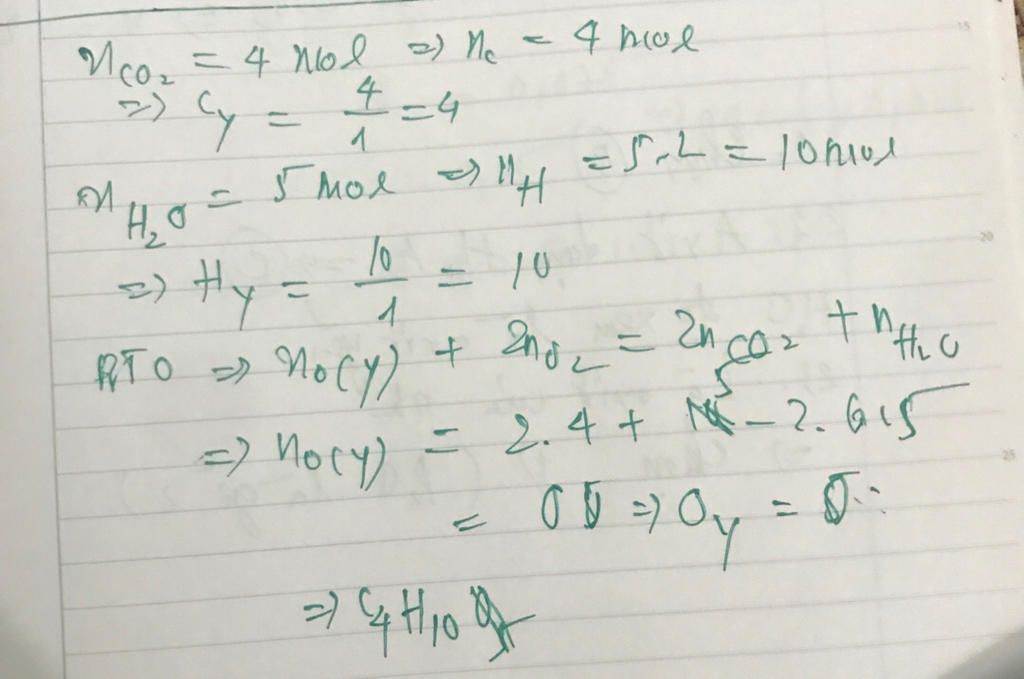 n_CO₂ = 4 mol => n_c = 4 mol
=> C_y = 4/1 = 4
n_H₂O = 5 mol => n_H = 5.2 = 10 mol
=> H_y = 10/1 = 10
BTO => n_O(y) + 2n_O₂ = 2n_CO₂ + n_H₂O
=> n_O(y) = 2.4 + 5 - 2. 6,5
= 0 => O_y = 0
=> C₄H₁₀
15
20
25